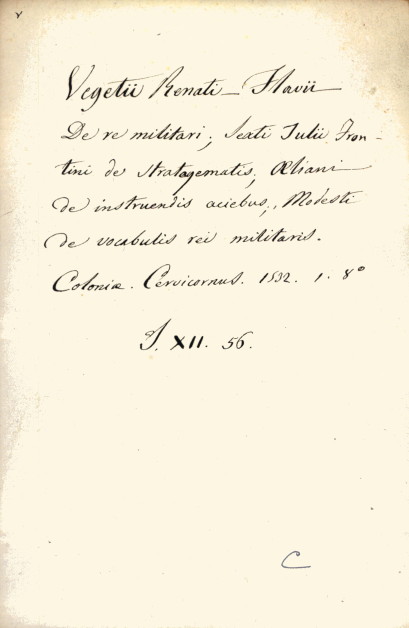 Vegetii Renati - Flavii
De re militari; Sexti Julii Fron-
tini de stratagematis; Æliani
de instruendis aciebus; Modesti
de vocabulis rei militaris.
Coloniæ. Cervicornus. 1532. 1. 8º
J. XII. 56.
C